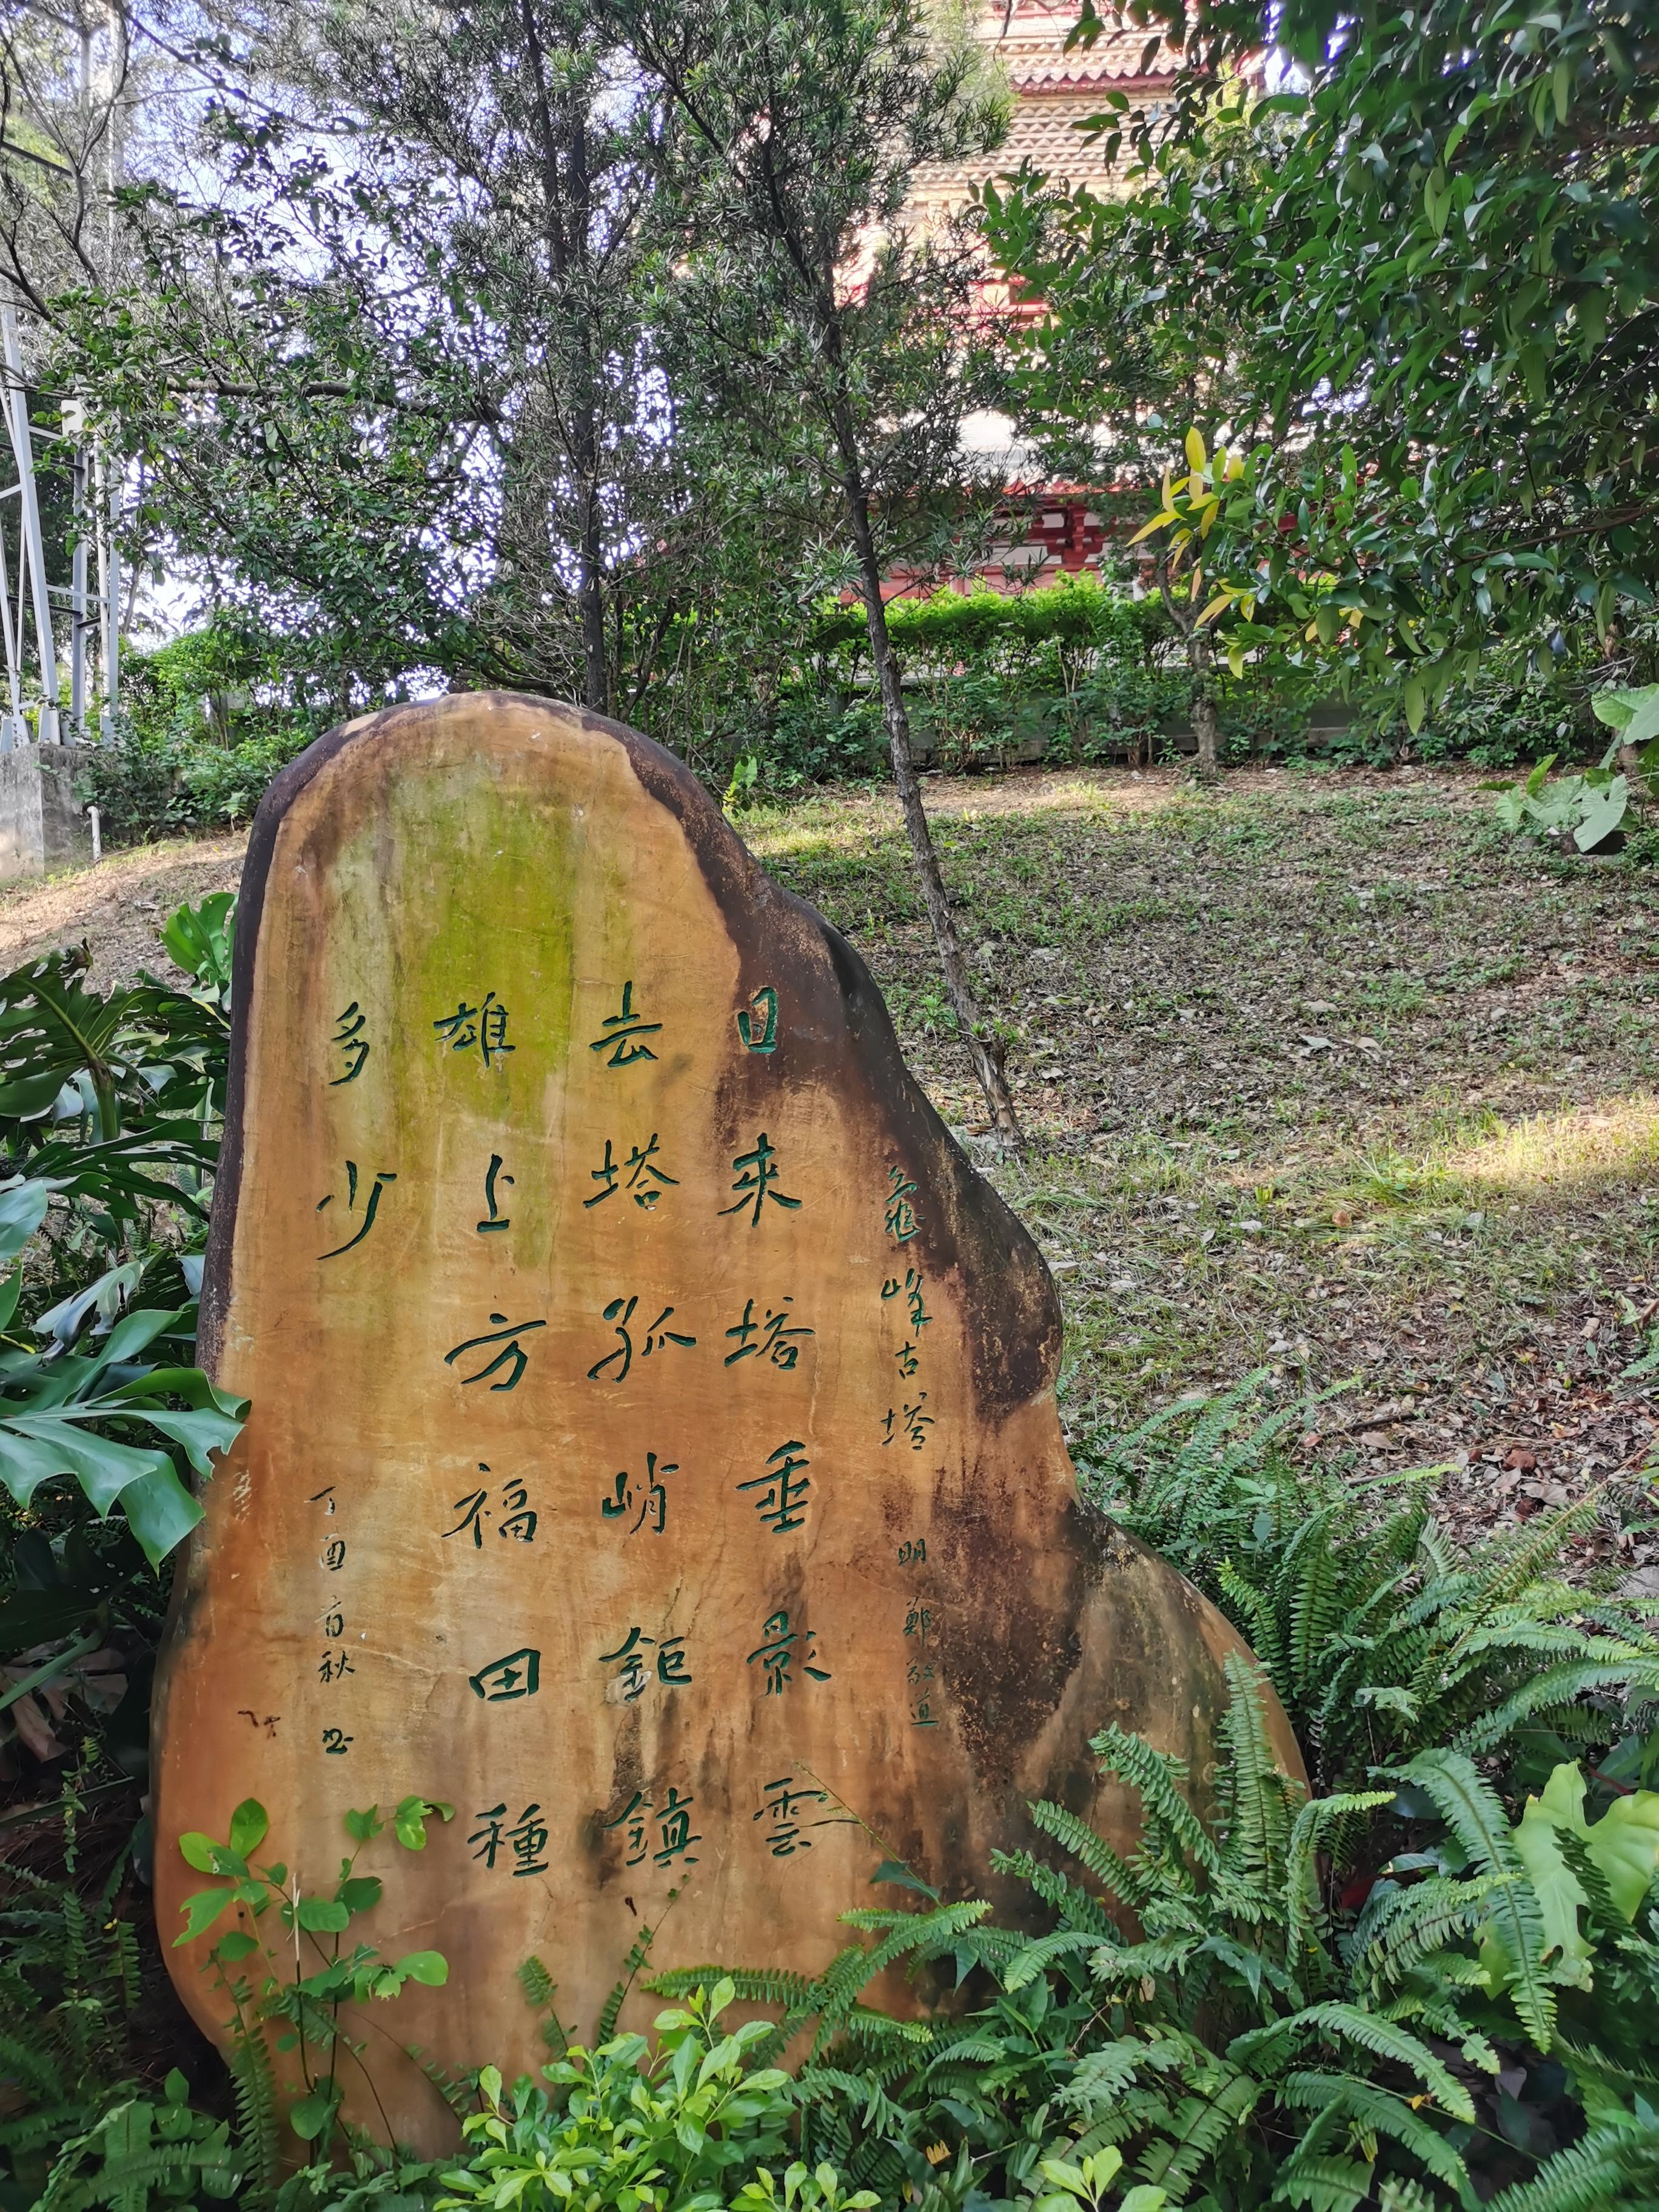 龜峰古塔 明 鄭敬道
日来塔垂影雲
去塔孤峭鉅鎮
雄上方福田種
多少
丁酉百秋书